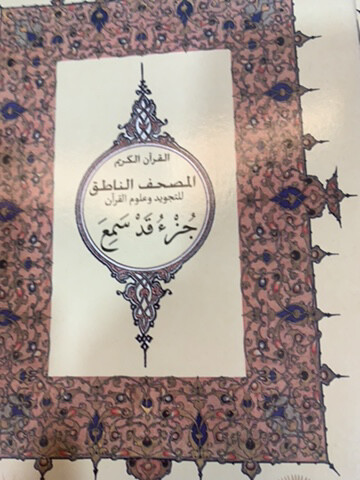 القرآن الكريم
المصحف الناطق
للتجويد وعلوم القرآن
جُزْءُ قَدْ سَمِعَ